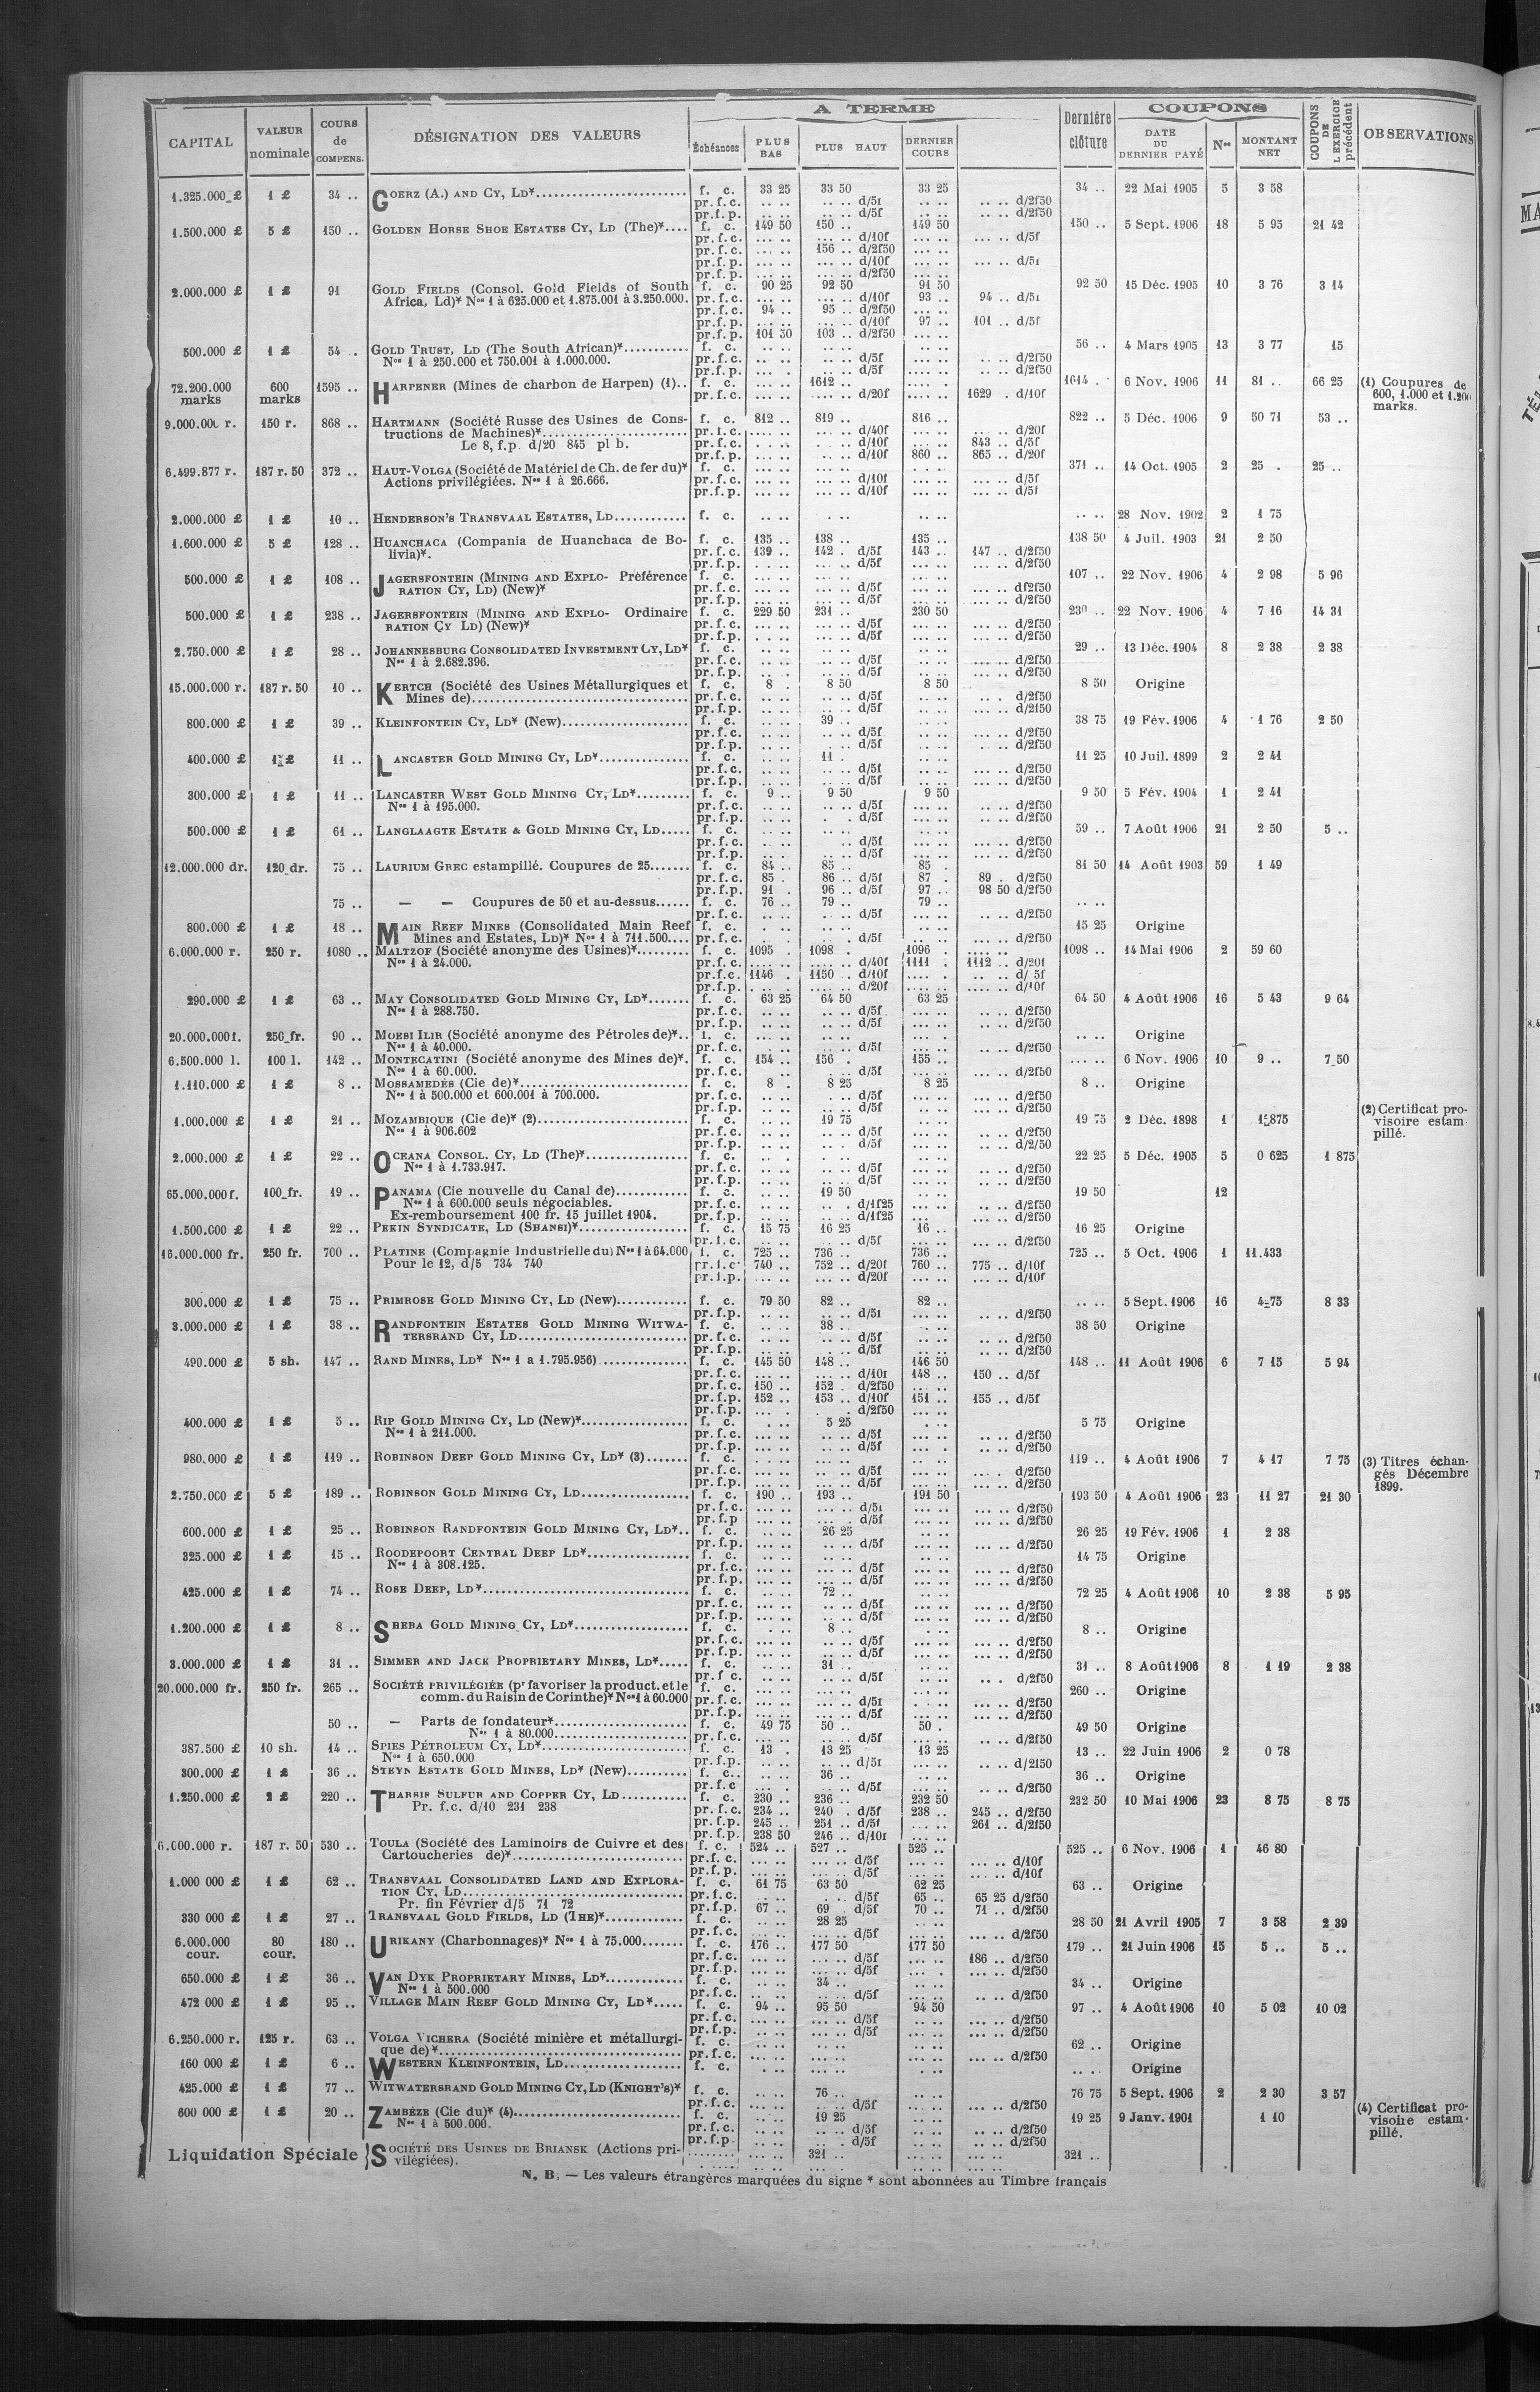 A TERME
COUPONS
CAPITAL | VALEUR nominale | COURS de COMPENS. | DÉSIGNATION DES VALEURS | Échéances | PLUS BAS | PLUS HAUT | DERNIER COURS | Dernière clôture | DATE DU DERNIER PAYÉ | Nos | MONTANT NET | COUPONS DE L'EXERCICE précédent | OBSERVATIONS
1.325.000 £ 1 £ 34 .. GOERZ (A.) AND CY, LD* f. c. 33 25 33 50 33 25 34 .. 22 Mai 1905 5 3 58
pr.f.c. .. .. .. .. d/5f .. .. .. .. d/2f50
pr.f.p. .. .. .. .. d/5f .. .. .. .. d/2f50
1.500.000 £ 5 £ 150 .. GOLDEN HORSE SHOE ESTATES CY, LD (The)* f. c. 149 50 150 .. 149 50 150 .. 5 Sept. 1906 18 5 95 21 42
pr.f.c. ... .. ... .. d/10f ... .. ... .. d/5f
pr.f.c. ... .. 156 .. d/2f50 ... ..
pr.f.p. ... .. ... .. d/10f ... .. ... .. d/5f
pr.f.p. ... .. ... .. d/2f50 ... ..
2.000.000 £ 1 £ 91 GOLD FIELDS (Consol. Gold Fields of South f. c. 90 25 92 50 91 50 92 50 15 Déc. 1905 10 3 76 3 14
Africa, Ld)* Nos 1 à 625.000 et 1.875.001 à 3.250.000. pr.f.c. ... .. ... .. d/10f 93 .. 94 .. d/5f
pr.f.c. 94 .. 95 .. d/2f50 ... ..
pr.f.p. ... .. ... .. d/10f 97 .. 101 .. d/5f
pr.f.p. 101 50 103 .. d/2f50 ... ..
500.000 £ 1 £ 54 .. GOLD TRUST, LD (The South African)* f. c. 56 .. 4 Mars 1905 13 3 77 15
Nos 1 à 250.000 et 750.001 à 1.000.000. pr.f.c. .. .. d/5f .. .. d/2f50
pr.f.p. .. .. d/5f .. .. d/2f50
72.200.000 marks 600 marks 1595 .. HARPENER (Mines de charbon de Harpen) (1).. f. c. ... .. 1612 .. 1614 .. 6 Nov. 1906 11 81 .. 66 25 (1) Coupures de 600, 1.000 et 1.200 marks.
pr.f.c. ... .. ... .. d/20f ... .. 1629 . d/10f
9.000.000 r. 150 r. 868 .. HARTMANN (Société Russe des Usines de Cons- f. c. 812 .. 819 .. 816 .. 822 .. 5 Déc. 1906 9 50 71 53 ..
tructions de Machines)* pr.f.c. ... .. d/40f ... .. d/20f
Le 8, f.p. d/20 845 pl b. pr.f.c. ... .. d/10f 843 .. d/5f
pr.f.p. ... .. d/10f 860 .. 865 .. d/20f
6.499.877 r. 187 r. 50 372 .. HAUT-VOLGA (Société de Matériel de Ch. de fer du)* f. c. 371 .. 14 Oct. 1905 2 25 . 25 ..
Actions privilégiées. Nos 1 à 26.666. pr.f.c. ... .. d/10f ... .. d/5f
pr.f.p. ... .. d/10f ... .. d/5f
2.000.000 £ 1 £ 10 .. HENDERSON'S TRANSVAAL ESTATES, LD f. c. .. .. 28 Nov. 1902 2 1 75
1.600.000 £ 5 £ 128 .. HUANCHACA (Compania de Huanchaca de Bo- f. c. 135 .. 138 .. 135 .. 138 50 4 Juil. 1903 21 2 50
livia)*. pr.f.c. 139 .. 142 . d/5f 143 .. 147 .. d/2f50
pr.f.p. ... .. d/5f ... .. d/2f50
500.000 £ 1 £ 108 .. JAGERSFONTEIN (MINING AND EXPLO- Préférence f. c. 107 .. 22 Nov. 1906 4 2 98 5 96
RATION CY, LD) (New)* pr.f.c. ... .. d/5f ... .. df2f50
pr.f.p. ... .. d/5f ... .. d/2f50
500.000 £ 1 £ 238 .. JAGERSFONTEIN (MINING AND EXPLO- Ordinaire f. c. 229 50 231 .. 230 50 230 .. 22 Nov. 1906 4 7 16 14 31
RATION CY LD) (New)* pr.f.c. ... .. d/5f ... .. d/2f50
pr.f.p. ... .. d/5f ... .. d/2f50
2.750.000 £ 1 £ 28 .. JOHANNESBURG CONSOLIDATED INVESTMENT CY, LD* f. c. 29 .. 13 Déc. 1904 8 2 38 2 38
Nos 1 à 2.682.396. pr.f.c. .. .. d/5f ... .. d/2f50
pr.f.p. .. .. d/5f ... .. d/2f50
15.000.000 r. 187 r. 50 10 .. KERTCH (Société des Usines Métallurgiques et f. c. 8 . 8 50 8 50 8 50 Origine
Mines de) pr.f.c. .. .. d/5f .. . d/2f50
pr.f.p. .. .. d/5f .. .. d/2f50
800.000 £ 1 £ 39 .. KLEINFONTEIN CY, LD* (New) f. c. 39 .. 38 75 19 Fév. 1906 4 1 76 2 50
pr.f.c. .. .. d/5f .. .. d/2f50
pr.f.p. .. .. d/5f .. .. d/2f50
400.000 £ 1 £ 11 .. LANCASTER GOLD MINING CY, LD* f. c. 11 . 11 25 10 Juil. 1899 2 2 41
pr.f.c. .. .. d/5f ... .. d/2f50
pr.f.p. .. .. d/5f ... .. d/2f50
300.000 £ 1 £ 11 .. LANCASTER WEST GOLD MINING CY, LD* f. c. 9 .. 9 50 9 50 9 50 5 Fév. 1904 1 2 41
Nos 1 à 195.000. pr.f.c. .. .. d/5f .. .. d/2f50
pr.f.p. . . d/5f .. .. d/2f50
500.000 £ 1 £ 61 .. LANGLAAGTE ESTATE & GOLD MINING CY, LD f. c. 59 .. 7 Août 1906 21 2 50 5 ..
pr.f.c. .. .. d/5f .. .. d/2f50
pr.f.p. .. .. d/5f .. .. d/2f50
12.000.000 dr. 120 dr. 75 .. LAURIUM GREC estampillé. Coupures de 25 f. c. 84 .. 85 .. 85 . 81 50 14 Août 1903 59 1 49
pr.f.c. 85 . 86 .. d/5f 87 . 89 . d/2f50
pr.f.p. 91 . 96 .. d/5f 97 .. 98 50 d/2f50
75 .. — — Coupures de 50 et au-dessus f. c. 76 .. 79 .. 79 .. .. ..
pr.f.c. .. . d/5f .. .. d/2f50
800.000 £ 1 £ 18 .. MAIN REEF MINES (Consolidated Main Reef f. c. 15 25 Origine
Mines and Estates, LD)* Nos 1 à 711.500 pr.f.c. . d/5f ... .. d/2f50
6.000.000 r. 250 r. 1080 .. MALTZOF (Société anonyme des Usines)* f. c. 1095 . 1098 . 1096 . 1098 .. 14 Mai 1906 2 59 60
Nos 1 à 24.000. pr.f.c. .... .. d/40f 1111 . 1112 .. d/20f
pr.f.c. 1146 . 1150 .. d/10f .... . .. .. d/ 5f
pr.f.p. .... .. d/20f .... .. d/10f
290.000 £ 1 £ 63 .. MAY CONSOLIDATED GOLD MINING CY, LD* f. c. 63 25 64 50 63 25 64 50 4 Août 1906 16 5 43 9 64
Nos 1 à 288.750. pr.f.c. .. .. d/5f ... .. d/2f50
pr.f.p. .. .. d/5f ... .. d/2f50
20.000.000 f. 250 fr. 90 .. MOESI ILIR (Société anonyme des Pétroles de)*.. f. c. .. .. Origine
Nos 1 à 40.000. pr.f.c. .. .. d/5f .. .. d/2f50
6.500.000 l. 100 l. 142 .. MONTECATINI (Société anonyme des Mines de)*. f. c. 154 .. 156 . 155 .. ... .. 6 Nov. 1906 10 9 .. 7 50
Nos 1 à 60.000. pr.f.c. .. .. d/5f ... .. d/2f50
1.110.000 £ 1 £ 8 .. MOSSAMEDÈS (Cie de)* f. c. 8 . 8 25 8 25 8 .. Origine
Nos 1 à 500.000 et 600.001 à 700.000. pr.f.c. . .. d/5f ... .. d/2f50
pr.f.p. .. .. d/5f ... .. d/2f50
1.000.000 £ 1 £ 21 .. MOZAMBIQUE (Cie de)* (2) f. c. 19 75 19 75 2 Déc. 1898 1 1 875 (2) Certificat pro-visoire estam-pillé.
Nos 1 à 906.602 pr.f.c. .. .. d/5f .. .. d/2f50
pr.f.p. .. .. d/5f .. .. d/2/50
2.000.000 £ 1 £ 22 .. OCEANA CONSOL. CY, LD (The)* f. c. 22 25 5 Déc. 1905 5 0 625 1 875
Nos 1 à 1.733.917. pr.f.c. .. .. d/5f .. .. d/2f50
pr.f.p. .. .. d/5f .. .. d/2f50
65.000.000 f. 100 fr. 19 .. PANAMA (Cie nouvelle du Canal de) f. c. 19 50 19 50 12
Nos 1 à 600.000 seuls négociables. pr.f.c. .. . d/1f25 ... .. d/2f50
Ex-remboursement 100 fr. 15 juillet 1904. pr.f.p. .. .. d/1f25 ... .. d/2f50
1.500.000 £ 1 £ 22 .. PEKIN SYNDICATE, LD (SHANSI)* f. c. 15 75 16 25 16 .. 16 25 Origine
pr.f.c. .. .. d/5f .. .. d/2f50
16.000.000 fr. 250 fr. 700 .. PLATINE (Compagnie Industrielle du) Nos 1 à 64.000 f. c. 725 .. 736 .. 736 .. 725 .. 5 Oct. 1906 1 11.433
Pour le 12, d/5 734 740 pr.f.c. 740 .. 752 .. d/20f 760 .. 775 .. d/10f
pr.f.p. ... .. ... .. d/20f ... .. ... .. d/10f
300.000 £ 1 £ 75 .. PRIMROSE GOLD MINING CY, LD (New) f. c. 79 50 82 .. 82 .. .. .. 5 Sept. 1906 16 4 75 8 33
pr.f.p. .. .. d/5f .. .. d/2f50
3.000.000 £ 1 £ 38 .. RANDFONTEIN ESTATES GOLD MINING WITWA- f. c. 38 .. 38 50 Origine
TERSRAND CY, LD pr.f.c. .. .. d/5f .. .. d/2f50
pr.f.p. .. .. d/5f .. .. d/2f50
490.000 £ 5 sh. 147 .. RAND MINES, LD* Nos 1 a 1.795.956) f. c. 145 50 148 .. 146 50 148 .. 11 Août 1906 6 7 15 5 94
pr.f.c. ... .. ... .. d/10f 148 .. 150 .. d/5f
pr.f.c. 150 .. 152 . d/2f50 ... ..
pr.f.p. 152 .. 153 .. d/10f 151 .. 155 .. d/5f
pr.f.p. ... . . d/2f50 ... ..
400.000 £ 1 £ 5 .. RIP GOLD MINING CY, LD (New)* f. c. 5 25 5 75 Origine
Nos 1 à 211.000. pr.f.c. ... .. d/5f .. .. d/2f50
pr.f.p. ... .. d/5f .. .. d/2f50
980.000 £ 1 £ 119 .. ROBINSON DEEP GOLD MINING CY, LD* (3) f. c. 119 .. 4 Août 1906 7 4 17 7 75 (3) Titres échan-gés Décembre 1899.
pr.f.c. ... .. d/5f ... . d/2f50
pr.f.p. ... .. d/5f ... .. d/2f50
2.750.000 £ 5 £ 189 .. ROBINSON GOLD MINING CY, LD f. c. 190 .. 193 .. 191 50 193 50 4 Août 1906 23 11 27 21 30
pr.f.c. ... .. d/5f ... .. d/2f50
pr.f.p ... . d/5f ... .. d/2f50
600.000 £ 1 £ 25 .. ROBINSON RANDFONTEIN GOLD MINING CY, LD*.. f. c. 26 25 26 25 19 Fév. 1906 1 2 38
pr.f.p. .. .. d/5f ... .. d/2f50
325.000 £ 1 £ 15 .. ROODEPOORT CENTRAL DEEP LD* f. c. 14 75 Origine
Nos 1 à 308.125. pr.f.c. ... .. d/5f ... .. d/2f50
pr.f.p. ... .. d/5f ... .. d/2f50
425.000 £ 1 £ 74 .. ROSE DEEP, LD* f. c. 72 .. 72 25 4 Août 1906 10 2 38 5 95
pr.f.c. .. .. d/5f ... .. d/2f50
pr.f.p. .. .. d/5f ... .. d/2f50
1.200.000 £ 1 £ 8 .. SHEBA GOLD MINING CY, LD* f. c. 8 .. 8 .. Origine
pr.f.c. .. .. d/5f ... .. d/2f50
pr.f.p. .. .. d/5f ... .. d/2f50
3.000.000 £ 1 £ 31 .. SIMMER AND JACK PROPRIETARY MINES, LD* f. c. 31 .. 31 .. 8 Août 1906 8 1 19 2 38
pr.f c. .. .. d/5f .. . d/2f50
20.000.000 fr. 250 fr. 265 .. SOCIÉTÉ PRIVILÉGIÉE (pr favoriser la product. et le f. c. 260 .. Origine
comm. du Raisin de Corinthe)* Nos 1 à 60.000 pr.f.c. ... .. d/5f ... .. d/2f50
pr.f.p. ... .. d/5f ... .. d/2f50
50 .. — Parts de fondateur* f. c. 49 75 50 .. 50 . 49 50 Origine
Nos 1 à 80.000 pr.f.c. .. .. d/5f .. .. d/2f50
387.500 £ 10 sh. 14 .. SPIES PÉTROLEUM CY, LD* f. c. 13 . 13 25 13 25 13 .. 22 Juin 1906 2 0 78
Nos 1 à 650.000 pr.f.p. .. .. d/5f .. .. d/2f50
300.000 £ 1 £ 36 .. STEYN ESTATE GOLD MINES, LD* (New) f. c. 36 .. 36 .. Origine
pr.f.c .. .. d/5f .. .. d/2f50
1.250.000 £ 2 £ 220 .. THARSIS SULFUR AND COPPER CY, LD f. c. 230 .. 236 .. 232 50 232 50 10 Mai 1906 23 8 75 8 75
Pr. f.c. d/10 231 238 pr.f.c. 234 .. 240 . d/5f 238 .. 245 .. d/2f50
pr.f.p. 245 .. 251 .. d/5f ... .. 261 .. d/2f50
pr.f.p. 238 50 246 .. d/10f ... ..
6.000.000 r. 187 r. 50 530 .. TOULA (Société des Laminoirs de Cuivre et des f. c. 524 .. 527 .. 525 .. 525 .. 6 Nov. 1906 1 46 80
Cartoucheries de)* pr.f.c. ... .. d/5f ... .. d/10f
pr.f.p. ... .. d/5f ... .. d/10f
1.000 000 £ 1 £ 62 .. TRANSVAAL CONSOLIDATED LAND AND EXPLORA- f. c. 61 75 63 50 62 25 63 .. Origine
TION CY, LD pr.f.c. .. .. d/5f 65 .. 65 25 d/2f50
Pr. fin Février d/5 71 72 pr.f.p. 67 .. 69 . d/5f 70 .. 71 .. d/2f50
330 000 £ 1 £ 27 .. TRANSVAAL GOLD FIELDS, LD (THE)* f. c. 28 25 28 50 21 Avril 1905 7 3 58 2 39
pr.f.c. .. .. d/5f ... .. d/2f50
6.000.000 cour. 80 cour. 180 .. URIKANY (Charbonnages)* Nos 1 à 75.000 f. c. 176 .. 177 50 177 50 179 .. 21 Juin 1906 15 5 .. 5 ..
pr.f.c. ... .. d/5f ... .. 186 .. d/2f50
pr.f.p. ... .. d/5f ... .. d/2f50
650.000 £ 1 £ 36 .. VAN DYK PROPRIETARY MINES, LD* f. c. 34 .. 34 .. Origine
Nos 1 à 500.000 pr.f.c. .. .. d/5f .. .. d/2f50
472 000 £ 1 £ 95 .. VILLAGE MAIN REEF GOLD MINING CY, LD* f. c. 94 .. 95 50 94 50 97 .. 4 Août 1906 10 5 02 10 02
pr.f.c. ... .. d/5f ... .. d/2f50
pr.f.p. .. .. d/5f ... .. d/2f50
6.250.000 r. 125 r. 63 .. VOLGA VICHERA (Société minière et métallurgi- f. c. 62 .. Origine
que de)* pr.f.c. ... .. ... .. d/2f50
160 000 £ 1 £ 6 .. WESTERN KLEINFONTEIN, LD f. c. .. . Origine
425.000 £ 1 £ 77 .. WITWATERSRAND GOLD MINING CY, LD (KNIGHT'S)* f. c. 76 .. 76 75 5 Sept. 1906 2 2 30 3 57
pr.f.c. .. .. d/5f ... .. d/2f50
600 000 £ 1 £ 20 .. ZAMBÈZE (Cie du)* (4) f. c. 19 25 19 25 9 Janv. 1901 1 10 (4) Certificat pro-visoire estam-pillé.
Nos 1 à 500.000. pr.f.c. .. .. d/5f .. .. d/2f50
pr.f.p .. . d/5f .. .. d/2f50
Liquidation Spéciale } SOCIÉTÉ DES USINES DE BRIANSK (Actions pri- 321 .. 321 ..
vilégiées).
N. B. — Les valeurs étrangères marquées du signe * sont abonnées au Timbre français